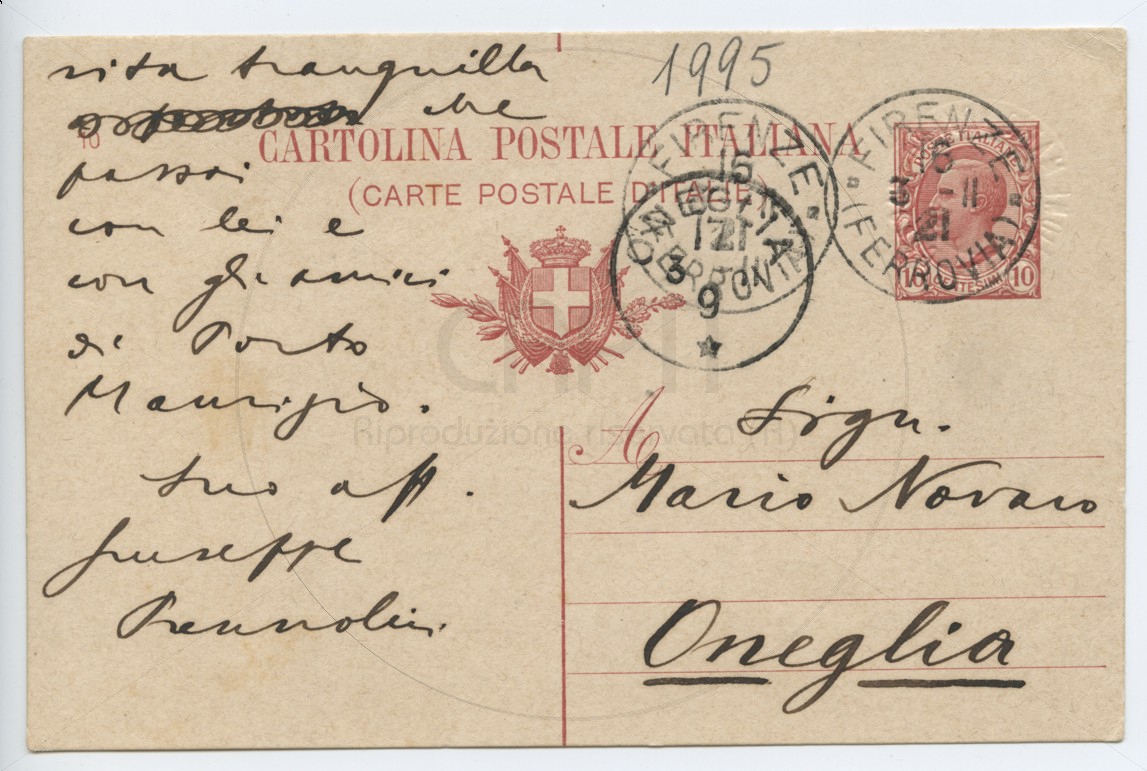 vita tranquilla
che
passai
con lei e
con gli amici
di Porto
Maurizio.
Suo aff.
Giuseppe
1995
10
CARTOLINA POSTALE ITALIANA
(CARTE POSTALE D'ITALIE)
FIRENZE
15
(FERROVIA)
ONEGLIA
9
★
FIRENZE
-11
21
(FERROVIA)
POSTE ITALIANE
10 CENTESIMI 10
A
Sign.
Mario Novaro
Oneglia
Riproduzione riservata (R)